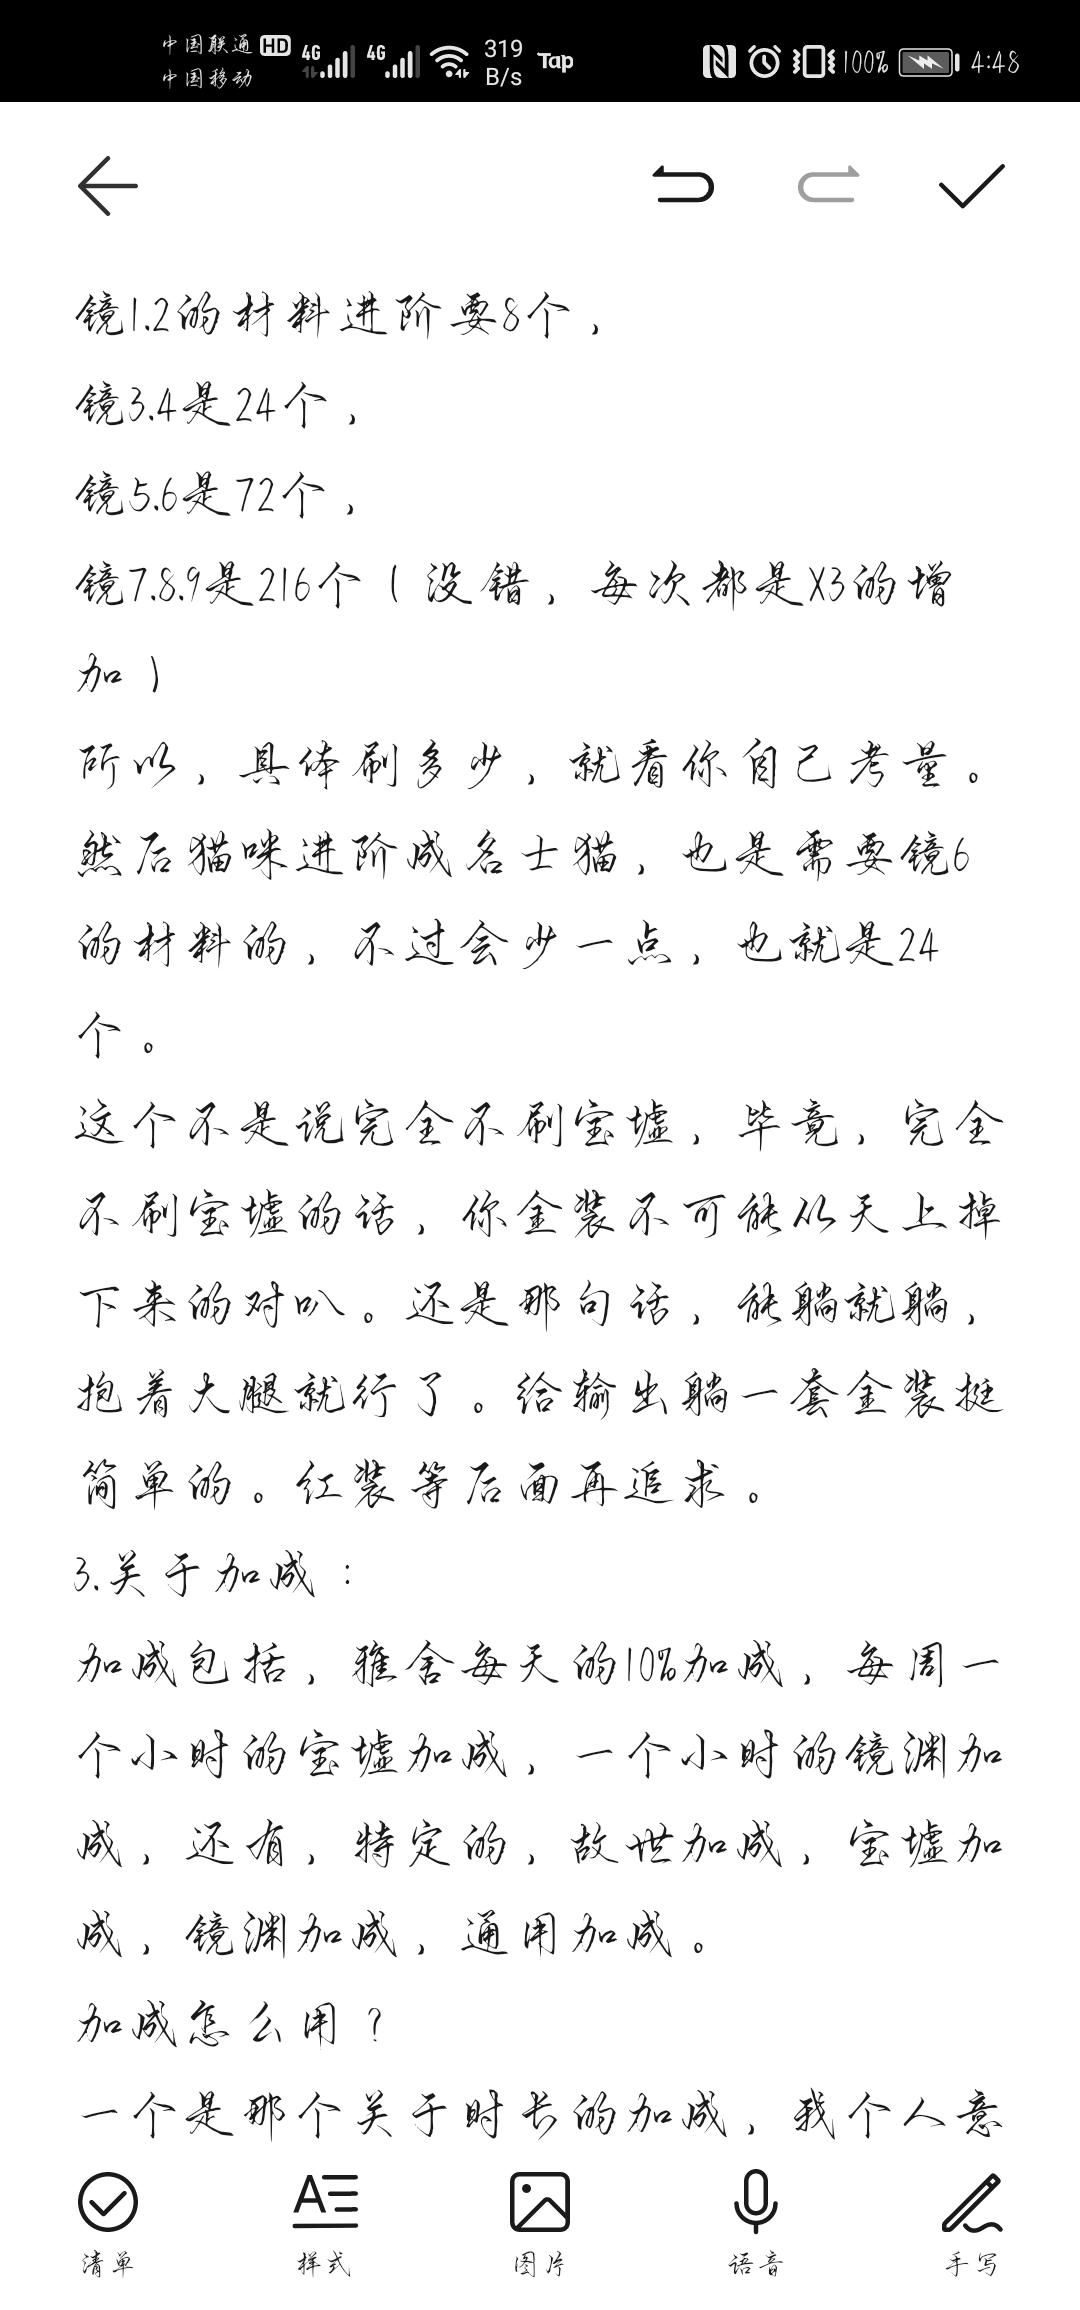 中国联通 HD 4G 4G 319 B/s Tap 100% 4:48
中国移动
镜1.2的材料进阶要8个，
镜3.4是24个，
镜5.6是72个，
镜7.8.9是216个（没错，每次都是X3的增
加）
所以，具体刷多少，就看你自己考量。
然后猫咪进阶成名士猫，也是需要镜6
的材料的，不过会少一点，也就是24
个。
这个不是说完全不刷宝墟，毕竟，完全
不刷宝墟的话，你金装不可能从天上掉
下来的对叭。还是那句话，能躺就躺，
抱着大腿就行了。给输出躺一套金装挺
简单的。红装等后面再追求。
3.关于加成：
加成包括，雅舍每天的10%加成，每周一
个小时的宝墟加成，一个小时的镜渊加
成，还有，特定的，故世加成，宝墟加
成，镜渊加成，通用加成。
加成怎么用？
一个是那个关于时长的加成，我个人意
清单 样式 图片 语音 手写